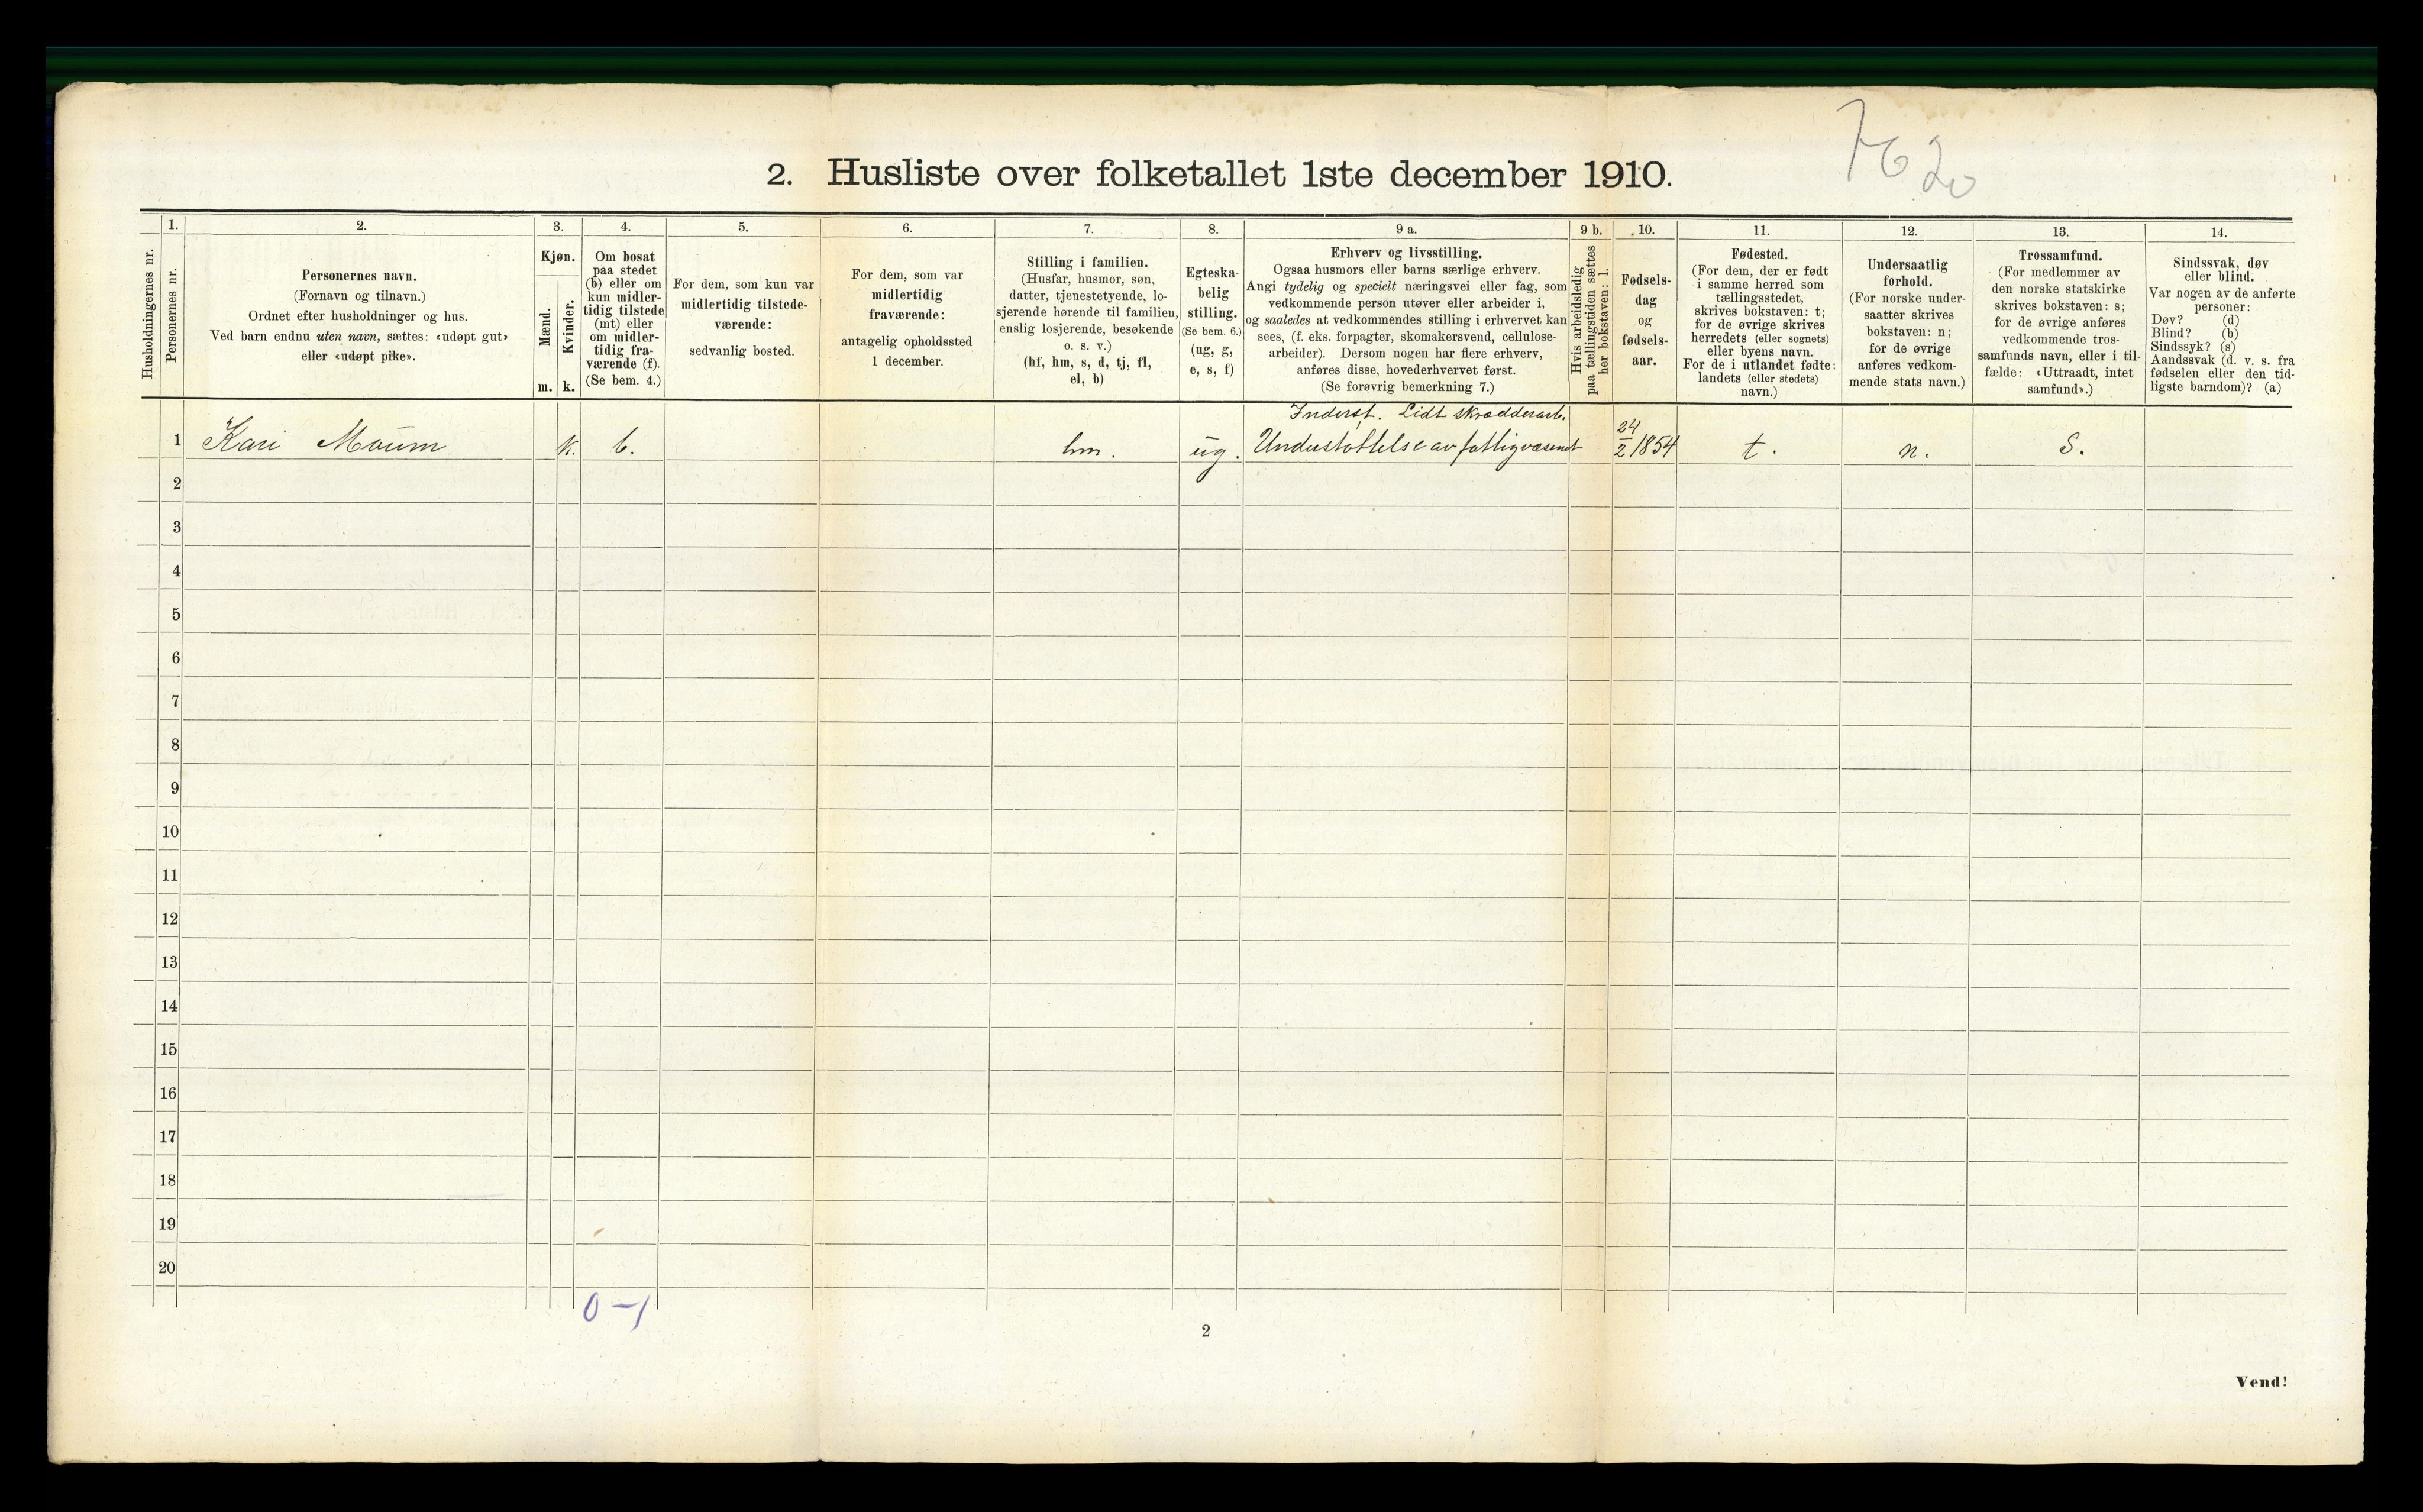 7620
2. Husliste over folketallet 1ste december 1910.
1. 2. 3. 4. 5. 6. 7. 8. 9 a. 9 b. 10. 11. 12. 13. 14.
Husholdningernes nr.
Personernes nr.
Personernes navn.
(Fornavn og tilnavn.)
Ordnet efter husholdninger og hus.
Ved barn endnu uten navn, sættes: «udøpt gut»
eller «udøpt pike».
Kjøn.
Mænd.
Kvinder.
m. k.
Om bosat
paa stedet
(b) eller om
kun midler-
tidig tilstede
(mt) eller
om midler-
tidig fra-
værende (f).
(Se bem. 4.)
For dem, som kun var
midlertidig tilstede-
værende:
sedvanlig bosted.
For dem, som var
midlertidig
fraværende:
antagelig opholdssted
1 december.
Stilling i familien.
(Husfar, husmor, søn,
datter, tjenestetyende, lo-
sjerende hørende til familien,
enslig losjerende, besøkende
o. s. v.)
(hf, hm, s, d, tj, fl,
el, b)
Egteska-
belig
stilling.
(Se bem. 6.)
(ug, g,
e, s, f)
Erhverv og livsstilling.
Ogsaa husmors eller barns særlige erhverv.
Angi tydelig og specielt næringsvei eller fag, som
vedkommende person utøver eller arbeider i,
og saaledes at vedkommendes stilling i erhvervet kan
sees, (f. eks. forpagter, skomakersvend, cellulose-
arbeider). Dersom nogen har flere erhverv,
anføres disse, hovederhvervet først.
(Se forøvrig bemerkning 7.)
Hvis arbeidsledig
paa tællingstiden sættes
her bokstaven: l.
Fødsels-
dag
og
fødsels-
aar.
Fødested.
(For dem, der er født
i samme herred som
tællingsstedet,
skrives bokstaven: t;
for de øvrige skrives
herredets (eller sognets)
eller byens navn.
For de i utlandet fødte:
landets (eller stedets)
navn.)
Undersaatlig
forhold.
(For norske under-
saatter skrives
bokstaven: n;
for de øvrige
anføres vedkom-
mende stats navn.)
Trossamfund.
(For medlemmer av
den norske statskirke
skrives bokstaven: s;
for de øvrige anføres
vedkommende tros-
samfunds navn, eller i til-
fælde: «Uttraadt, intet
samfund».)
Sindssvak, døv
eller blind.
Var nogen av de anførte
personer:
Døv? (d)
Blind? (b)
Sindssyk? (s)
Aandssvak (d. v. s. fra
fødselen eller den tid-
ligste barndom)? (a)
Inderst. Lidt skrædderarb.
1 Kari Moum k. b. hm. ug. Understøttelse av fattigvæsenet 24/2 1854 t. n. S.
2
3
4
5
6
7
8
9
10
11
12
13
14
15
16
17
18
19
20
0-1
2
Vend!